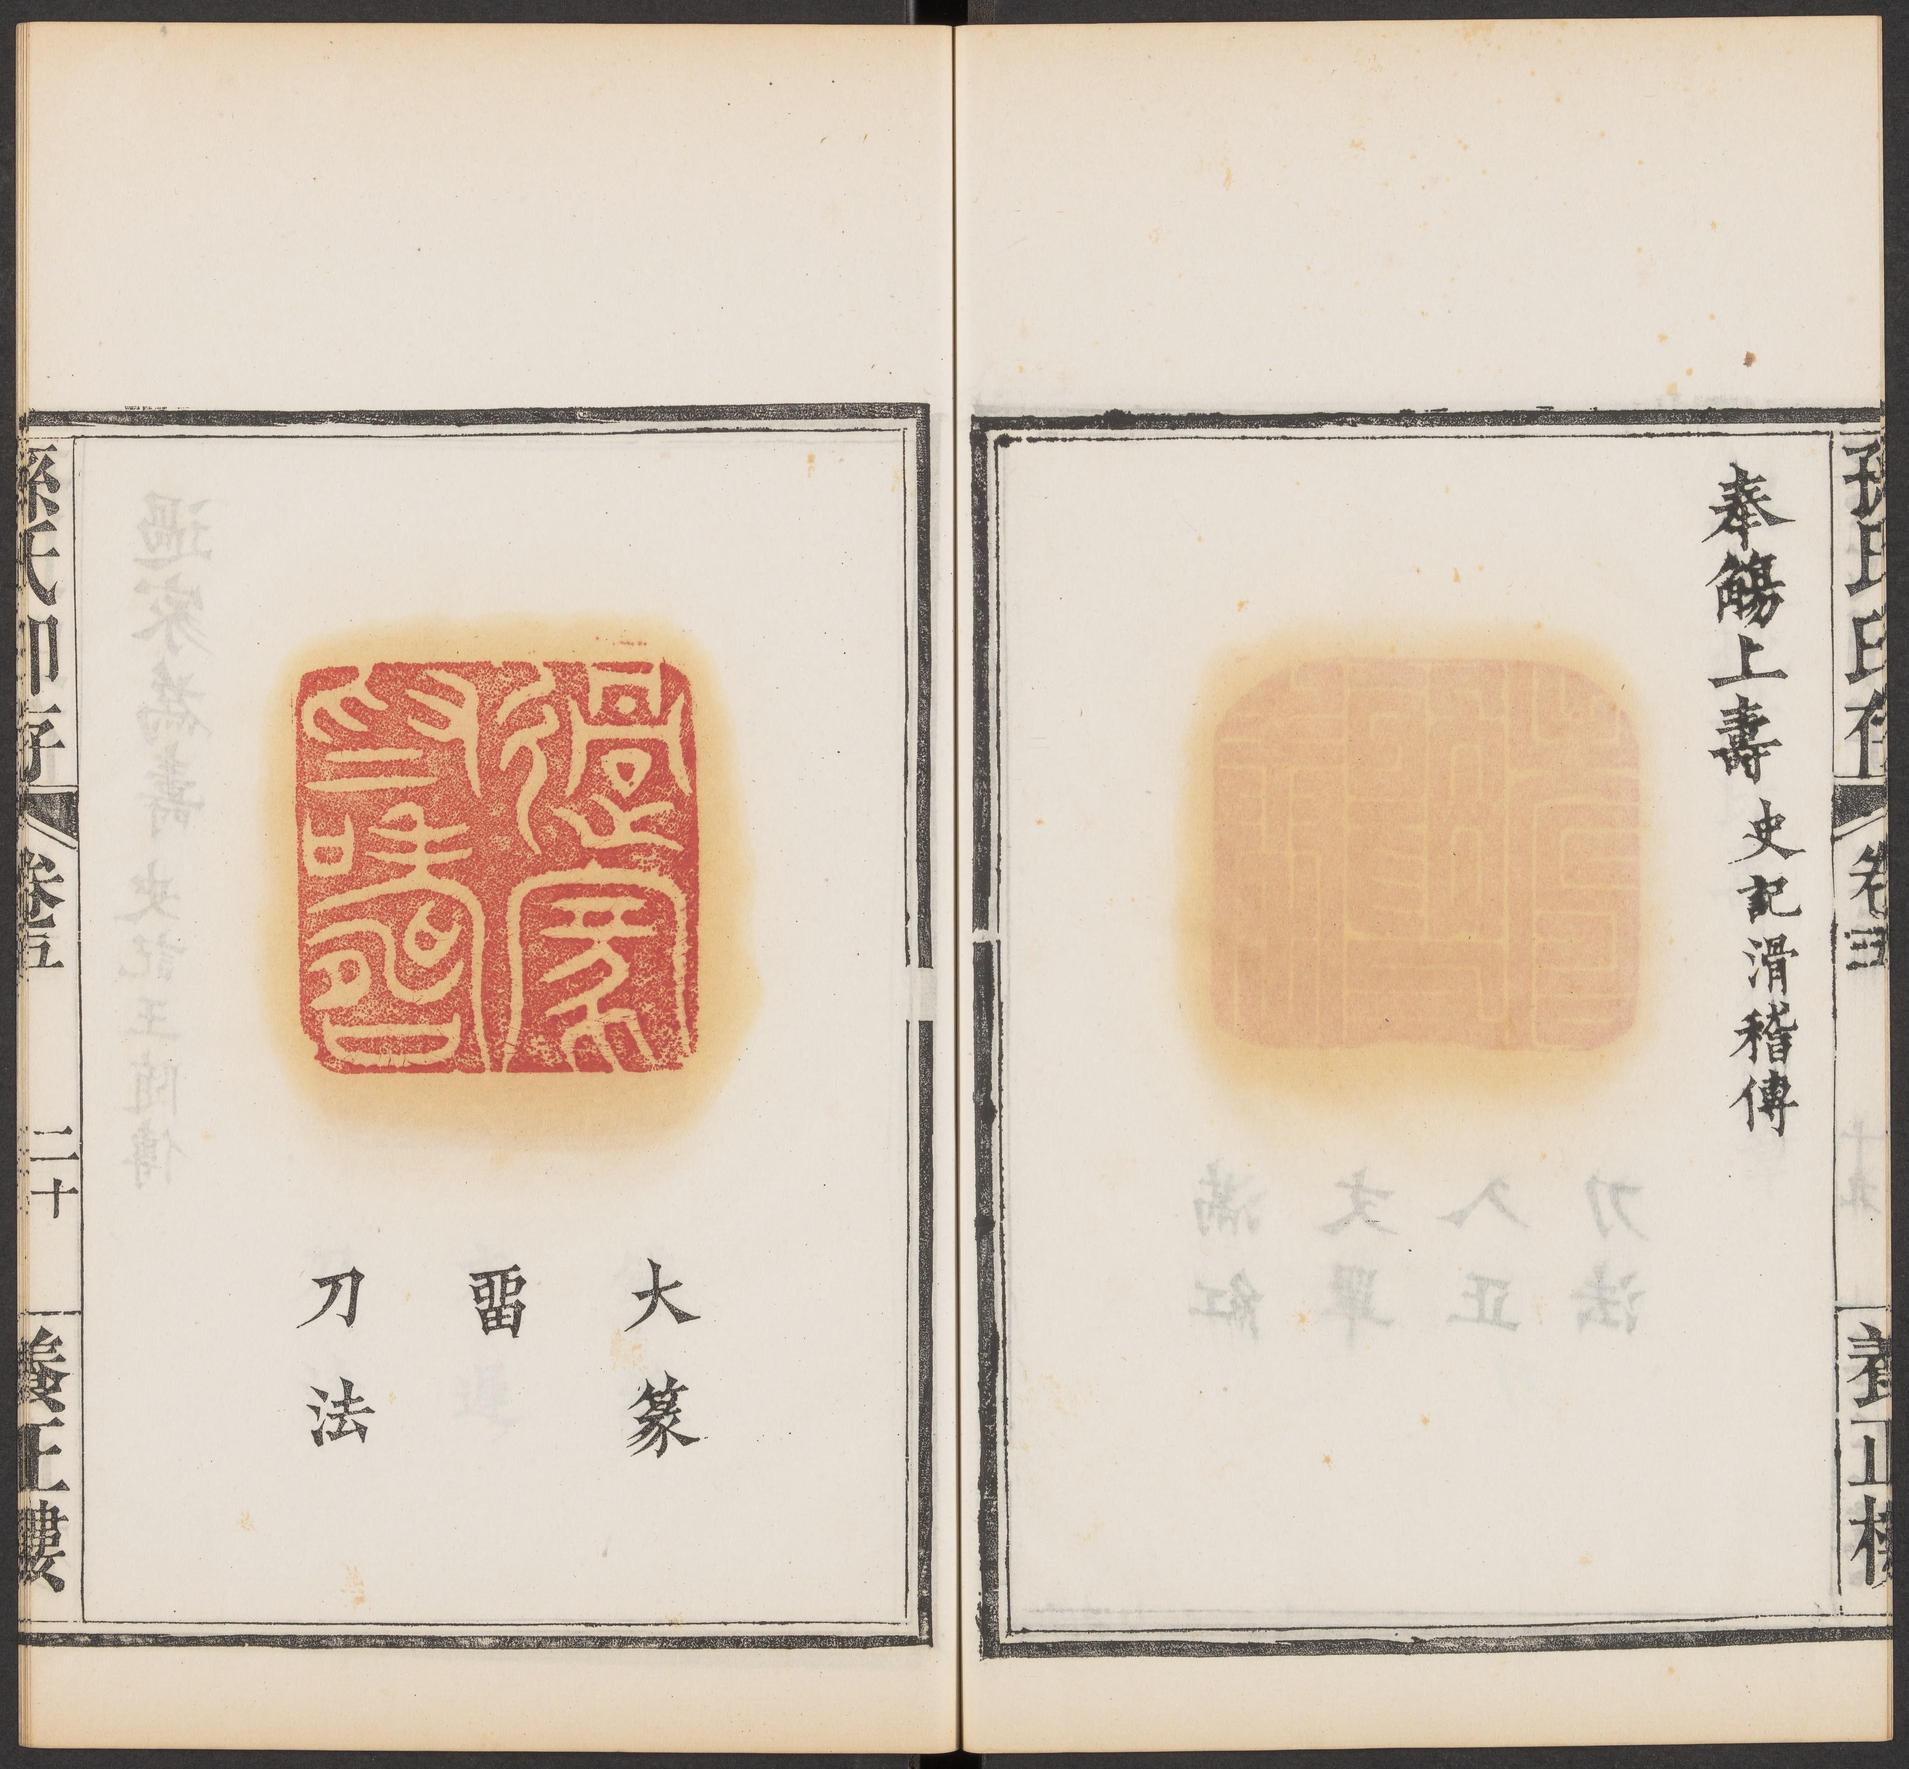 孫氏印存
卷三
養正樓
奉觴上壽 史記滑稽傳
過家為壽
大篆
畱
刀法
孫氏印存
卷五
二十
養正樓